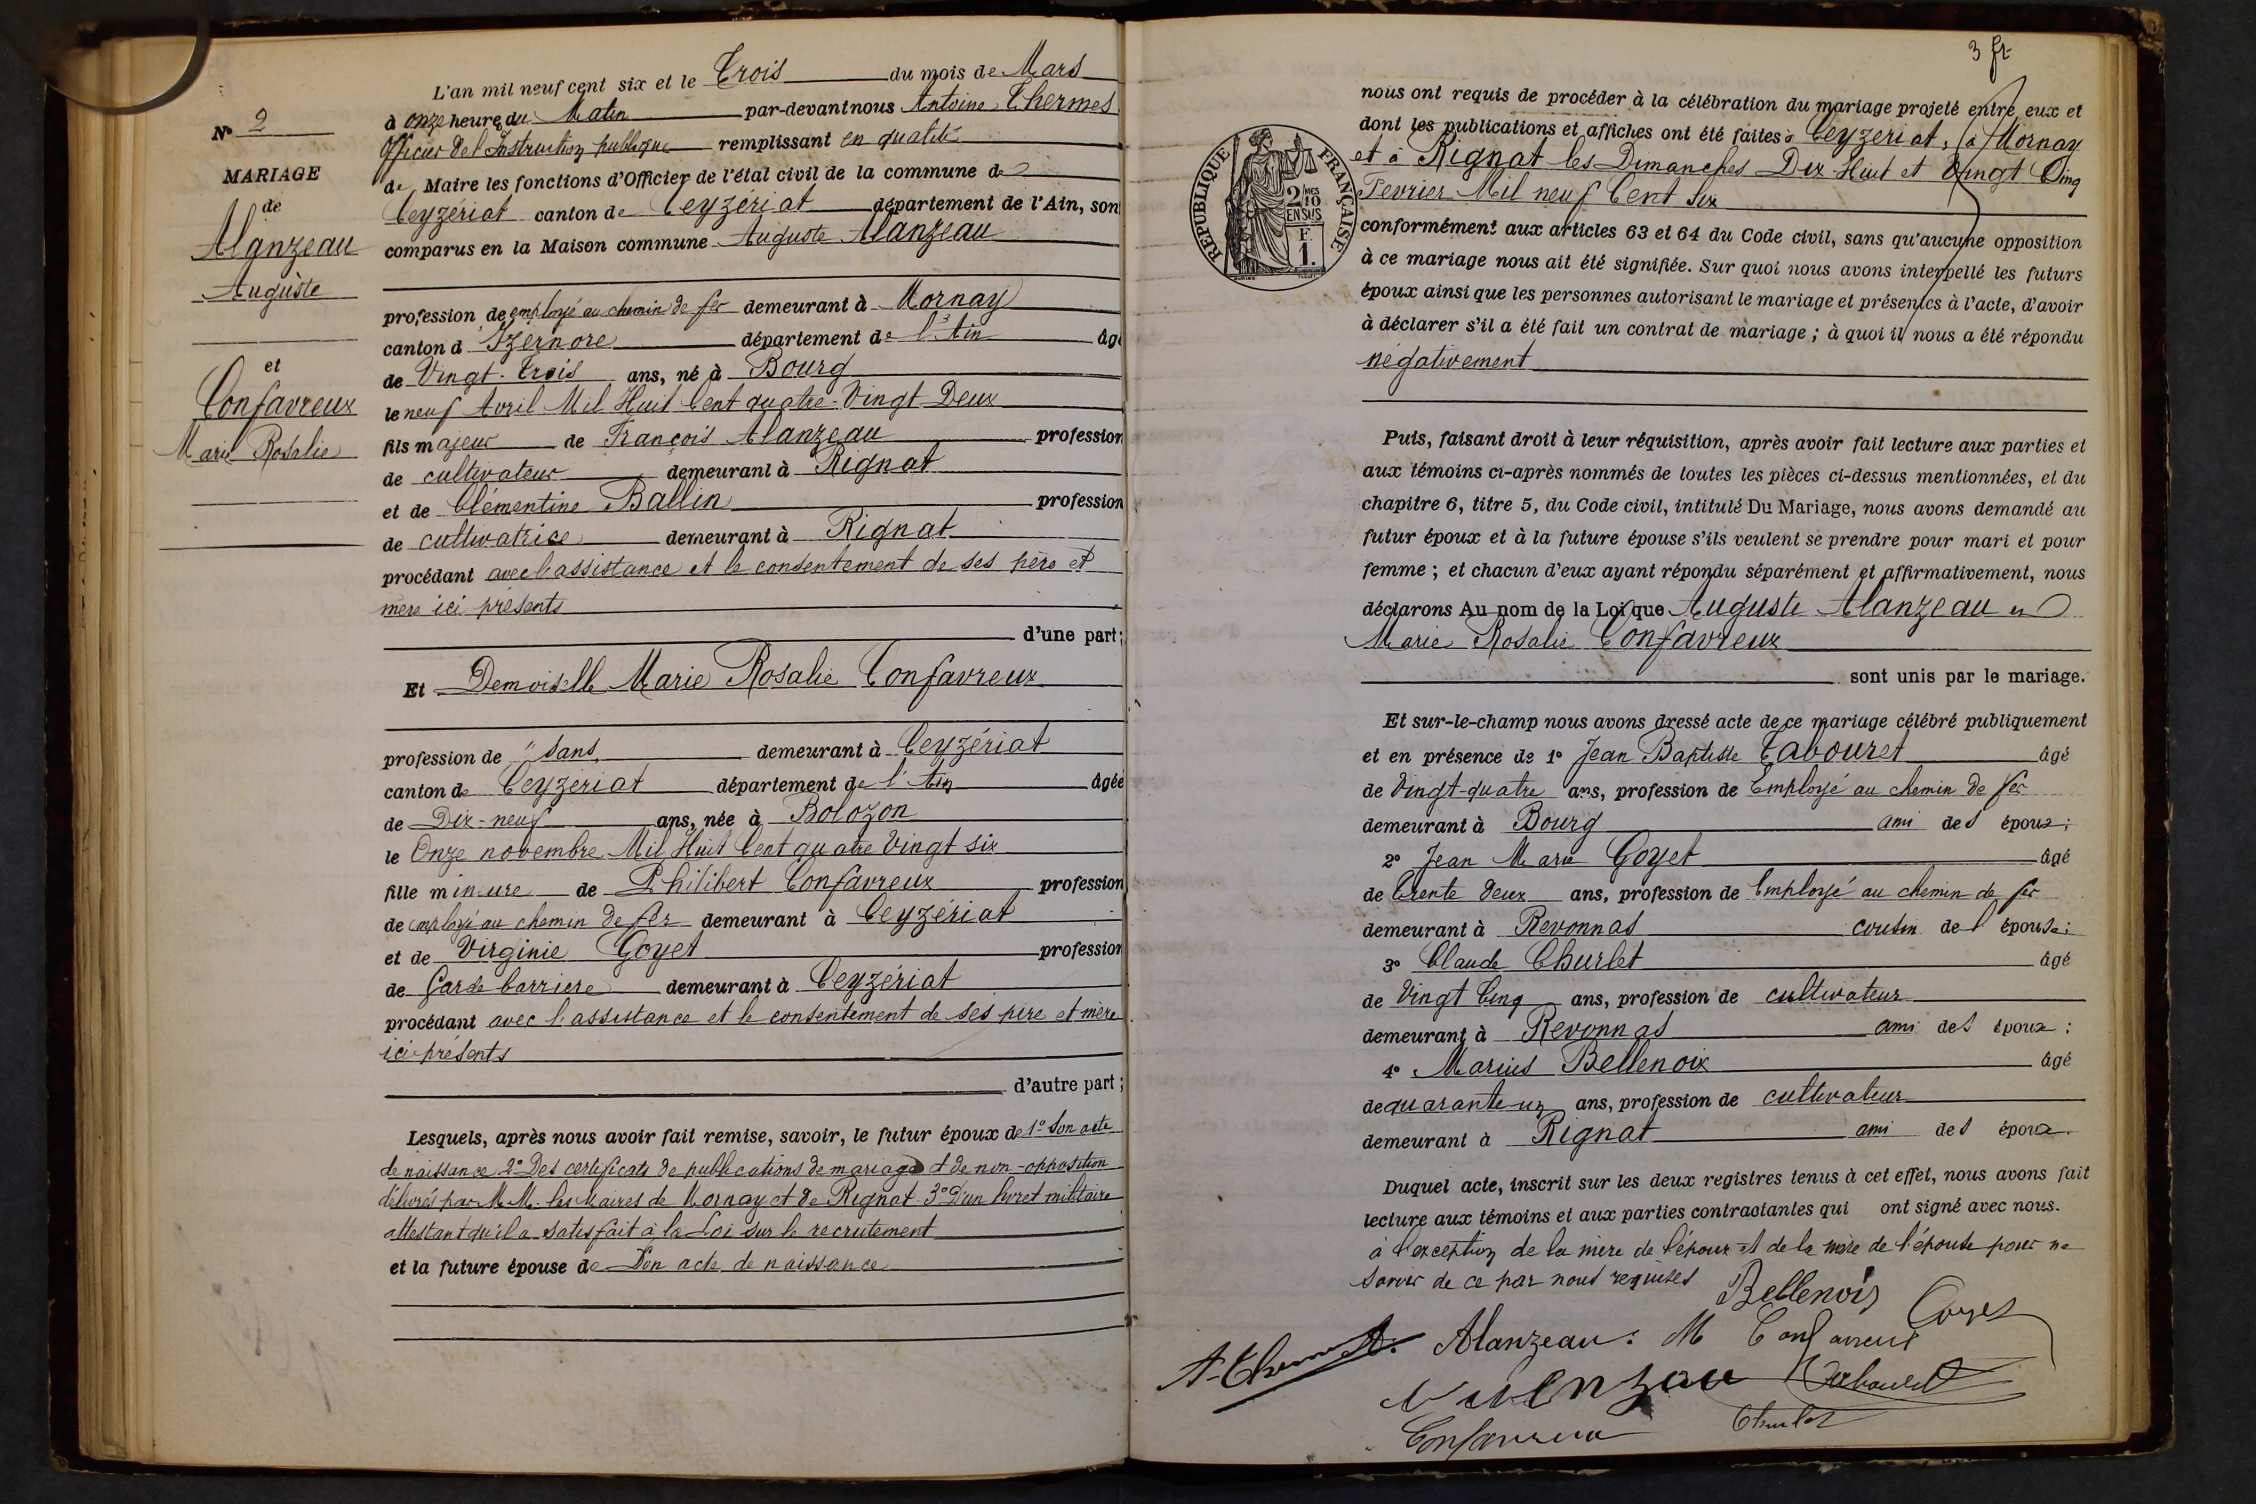 N° 2
MARIAGE
de
Alanzeau
Auguste
et
Confavreux
Marie Rosalie
L'an mil neuf cent six et le Trois du mois de Mars
à onze heures du Matin par-devant nous Antoine Thermes
Officier de l'Instruction publique remplissant en qualité
de Maire les fonctions d'Officier de l'état civil de la commune de
Ceyzériat canton de Ceyzériat département de l'Ain, son
comparus en la Maison commune Auguste Alanzeau
profession de employé au chemin de fer demeurant à Mornay
canton d'Izernore département de l'Ain âgé
de Vingt-Trois ans, né à Bourg
le neuf Avril Mil Huit Cent quatre-Vingt Deux
fils majeur de François Alanzeau profession
de cultivateur demeurant à Rignat
et de Clémentine Ballin profession
de cultivatrice demeurant à Rignat
procédant avec l'assistance et le consentement de ses père et
mère ici présents
d'une part;
Et Demoiselle Marie Rosalie Confavreux
profession de " sans demeurant à Ceyzériat
canton de Ceyzériat département de l'Ain âgée
de Dix-neuf ans, née à Bolozon
le Onze novembre Mil Huit Cent quatre Vingt six
fille mineure de Philibert Confavreux profession
de employé au chemin de fer demeurant à Ceyzériat
et de Virginie Goyet profession
de Garde barrière demeurant à Ceyzériat
procédant avec l'assistance et le consentement de ses père et mère
ici présents
d'autre part;
Lesquels, après nous avoir fait remise, savoir, le futur époux de 1° Son acte
de naissance 2° Des certificats de publications de mariage et de non-opposition
délivrés par M.M. les Maires de Mornay et de Rignat 3° D'un livret militaire
attestant qu'il a satisfait à la Loi sur le recrutement
et la future épouse de Son acte de naissance
3 fr
nous ont requis de procéder à la célébration du mariage projeté entre eux et
dont les publications et affiches ont été faites à Ceyzériat, à Mornay
et à Rignat les Dimanches Dix-Huit et Vingt Cinq
Février Mil neuf Cent Six
RÉPUBLIQUE FRANÇAISE
2/10MES
EN SUS
F.
1.
conformément aux articles 63 et 64 du Code civil, sans qu'aucune opposition
à ce mariage nous ait été signifiée. Sur quoi nous avons interpellé les futurs
époux ainsi que les personnes autorisant le mariage et présentes à l'acte, d'avoir
à déclarer s'il a été fait un contrat de mariage; à quoi il nous a été répondu
négativement
Puis, faisant droit à leur réquisition, après avoir fait lecture aux parties et
aux témoins ci-après nommés de toutes les pièces ci-dessus mentionnées, et du
chapitre 6, titre 5, du Code civil, intitulé Du Mariage, nous avons demandé au
futur époux et à la future épouse s'ils veulent se prendre pour mari et pour
femme; et chacun d'eux ayant répondu séparément et affirmativement, nous
déclarons Au nom de la Loi que Auguste Alanzeau et
Marie Rosalie Confavreux
sont unis par le mariage.
Et sur-le-champ nous avons dressé acte de ce mariage célébré publiquement
et en présence de 1° Jean Baptiste Tabouret âgé
de Vingt-quatre ans, profession de Employé au chemin de fer
demeurant à Bourg ami des époux;
2° Jean Marie Goyet âgé
de Trente deux ans, profession de Employé au chemin de fer
demeurant à Revonnas cousin de l'épouse;
3° Claude Churlet âgé
de Vingt Cinq ans, profession de cultivateur
demeurant à Revonnas ami des époux;
4° Marius Bellenoix âgé
de quarante-un ans, profession de cultivateur
demeurant à Rignat ami des époux.
Duquel acte, inscrit sur les deux registres tenus à cet effet, nous avons fait
lecture aux témoins et aux parties contractantes qui ont signé avec nous.
à l'exception de la mère de l'époux et de la mère de l'épouse pour ne
savoir de ce par nous requises
Bellenoix Goyet
A. Thermes Alanzeau. M Confavreux
Tabouret
Churlet
Confavreux